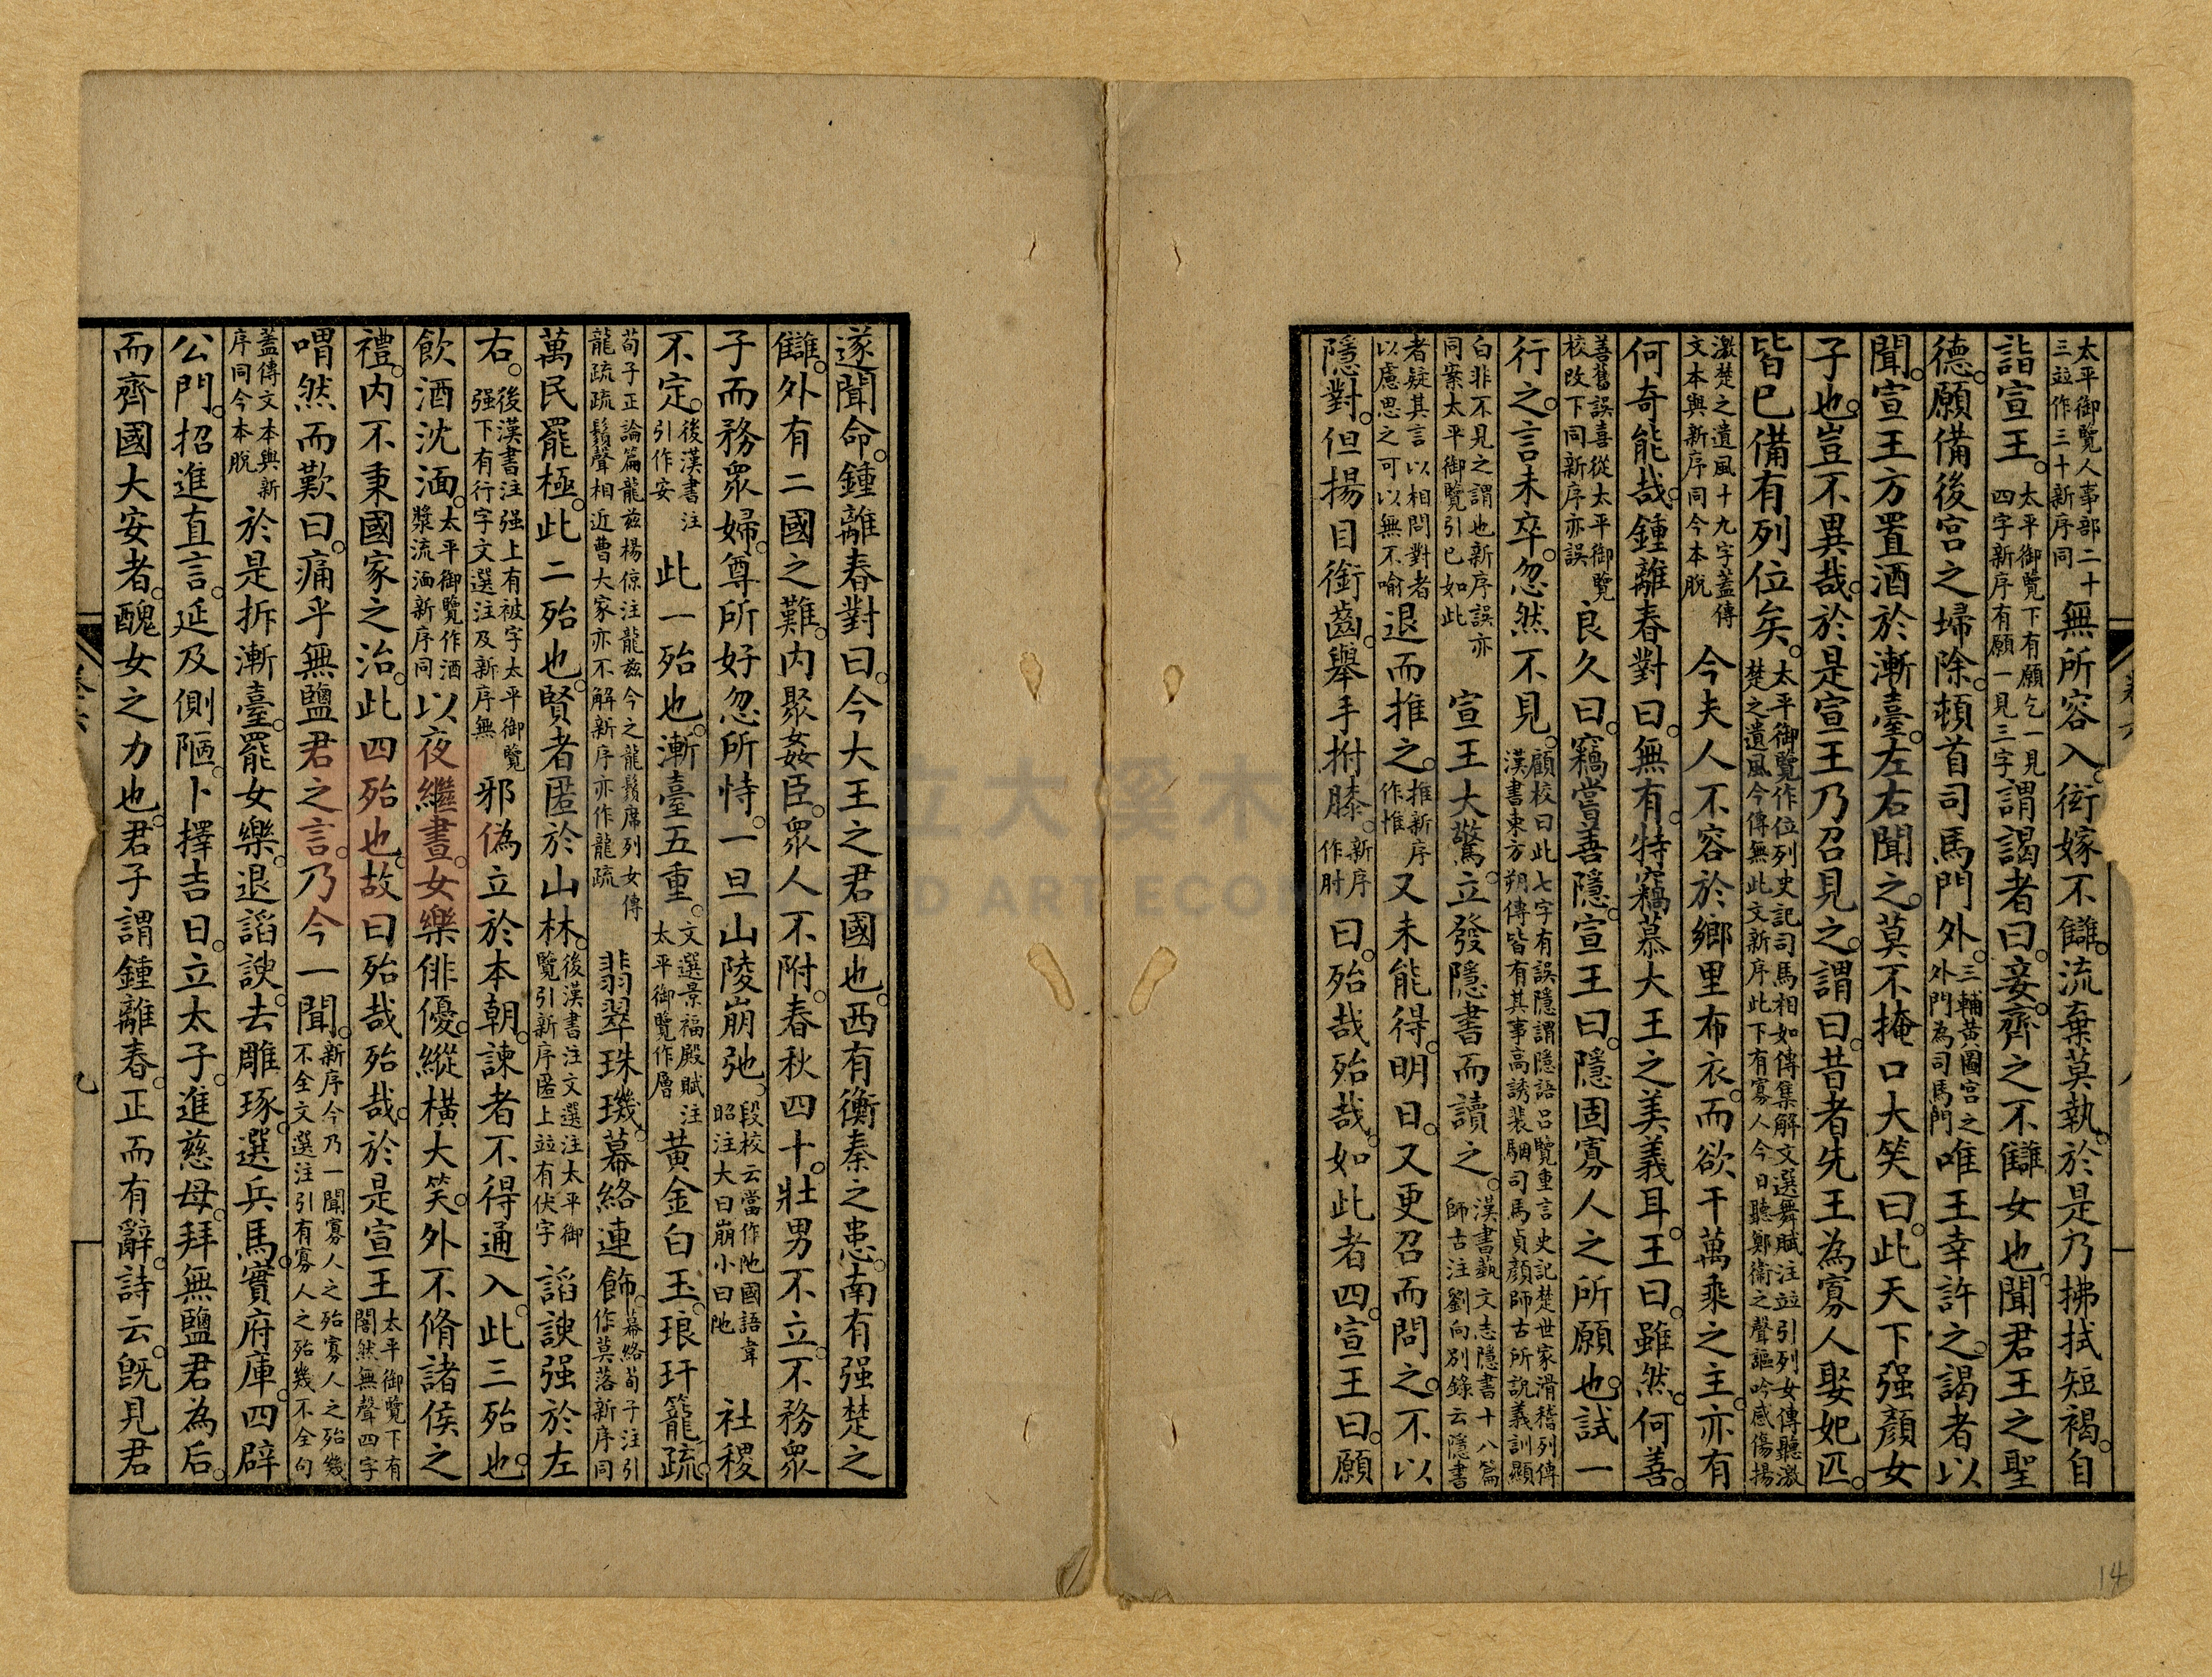 太平御覽人事部二十三並作三十新序同無所容入。衒嫁不讎。流棄莫執。於是乃拂拭短褐。自
詣宣王。太平御覽下有願乞一見四字新序有願一見三字謂謁者曰。妾。齊之不讎女也。聞君王之聖
德。願備後宮之埽除。頓首司馬門外。三輔黃圖宮之外門為司馬門唯王幸許之。謁者以
聞。宣王方置酒於漸臺。左右聞之。莫不掩口大笑曰。此天下强顏女
子也。豈不異哉。於是宣王乃召見之。謂曰。昔者先王為寡人娶妃匹。
皆已備有列位矣。太平御覽作位列史記司馬相如傳集解文選舞賦注並引列女傳聽激楚之遺風今傳無此文新序此下有寡人今日聽鄭衞之聲謳吟感傷揚
激楚之遺風十九字蓋傳文本與新序同今本脫今夫人不容於鄉里布衣。而欲干萬乘之主。亦有
何奇能哉。鍾離春對曰。無有。特竊慕大王之美義耳。王曰。雖然。何善。
善舊誤喜從太平御覽校改下同新序亦誤良久曰。竊嘗善隱。宣王曰。隱固寡人之所願也。試一
行之。言未卒。忽然不見。顧校曰此七字有誤隱謂隱語呂覽重言史記楚世家滑稽列傳漢書東方朔傳皆有其事高誘裴駰司馬貞顏師古所說義訓顯
白非不見之謂也新序誤亦同案太平御覽引已如此宣王大驚。立發隱書而讀之。漢書藝文志隱書十八篇師古注劉向別錄云隱書
者疑其言以相問對者以慮思之可以無不喻退而推之。推新序作惟又未能得。明日。又更召而問之。不以
隱對。但揚目銜齒。舉手拊膝。新序作肘曰。殆哉殆哉。如此者四。宣王曰。願
遂聞命。鍾離春對曰。今大王之君國也。西有衡秦之患。南有强楚之
讎。外有二國之難。內聚姦臣。眾人不附。春秋四十。壯男不立。不務眾
子而務眾婦。尊所好忽所恃。一旦山陵崩弛。段校云當作阤國語韋昭注大曰崩小曰阤社稷
不定。後漢書注引作安此一殆也。漸臺五重。文選景福殿賦注太平御覽作層黃金白玉。琅玕籠疏。
荀子正論篇龍兹楊倞注龍兹今之龍鬚席列女傳龍疏疏鬚聲相近曹大家亦不解新序亦作龍疏翡翠珠璣。幕絡連飾。幕絡荀子注引作莫落新序同
萬民罷極。此二殆也。賢者匿於山林。後漢書注文選注太平御覽引新序匿上並有伏字諂諛强於左
右。後漢書注强上有被字太平御覽强下有行字文選注及新序無邪偽立於本朝。諫者不得通入。此三殆也。
飲酒沈湎。太平御覽作酒漿流湎新序同以夜繼晝。女樂俳優。縱橫大笑。外不脩諸侯之
禮。內不秉國家之治。此四殆也。故曰殆哉殆哉。於是宣王太平御覽下有闇然無聲四字
喟然而歎曰。痛乎無鹽君之言。乃今一聞。新序今乃一聞寡人之殆寡人之殆幾不全文選注引有寡人之殆幾不全句
蓋傳文本與新序同今本脫於是拆漸臺。罷女樂。退諂諛。去雕琢。選兵馬。實府庫。四辟
公門。招進直言。延及側陋。卜擇吉日。立太子。進慈母。拜無鹽君為后。
而齊國大安者。醜女之力也。君子謂鍾離春。正而有辭。詩云。旣見君
卷六
八
九
14
立大溪木
D ART ECO